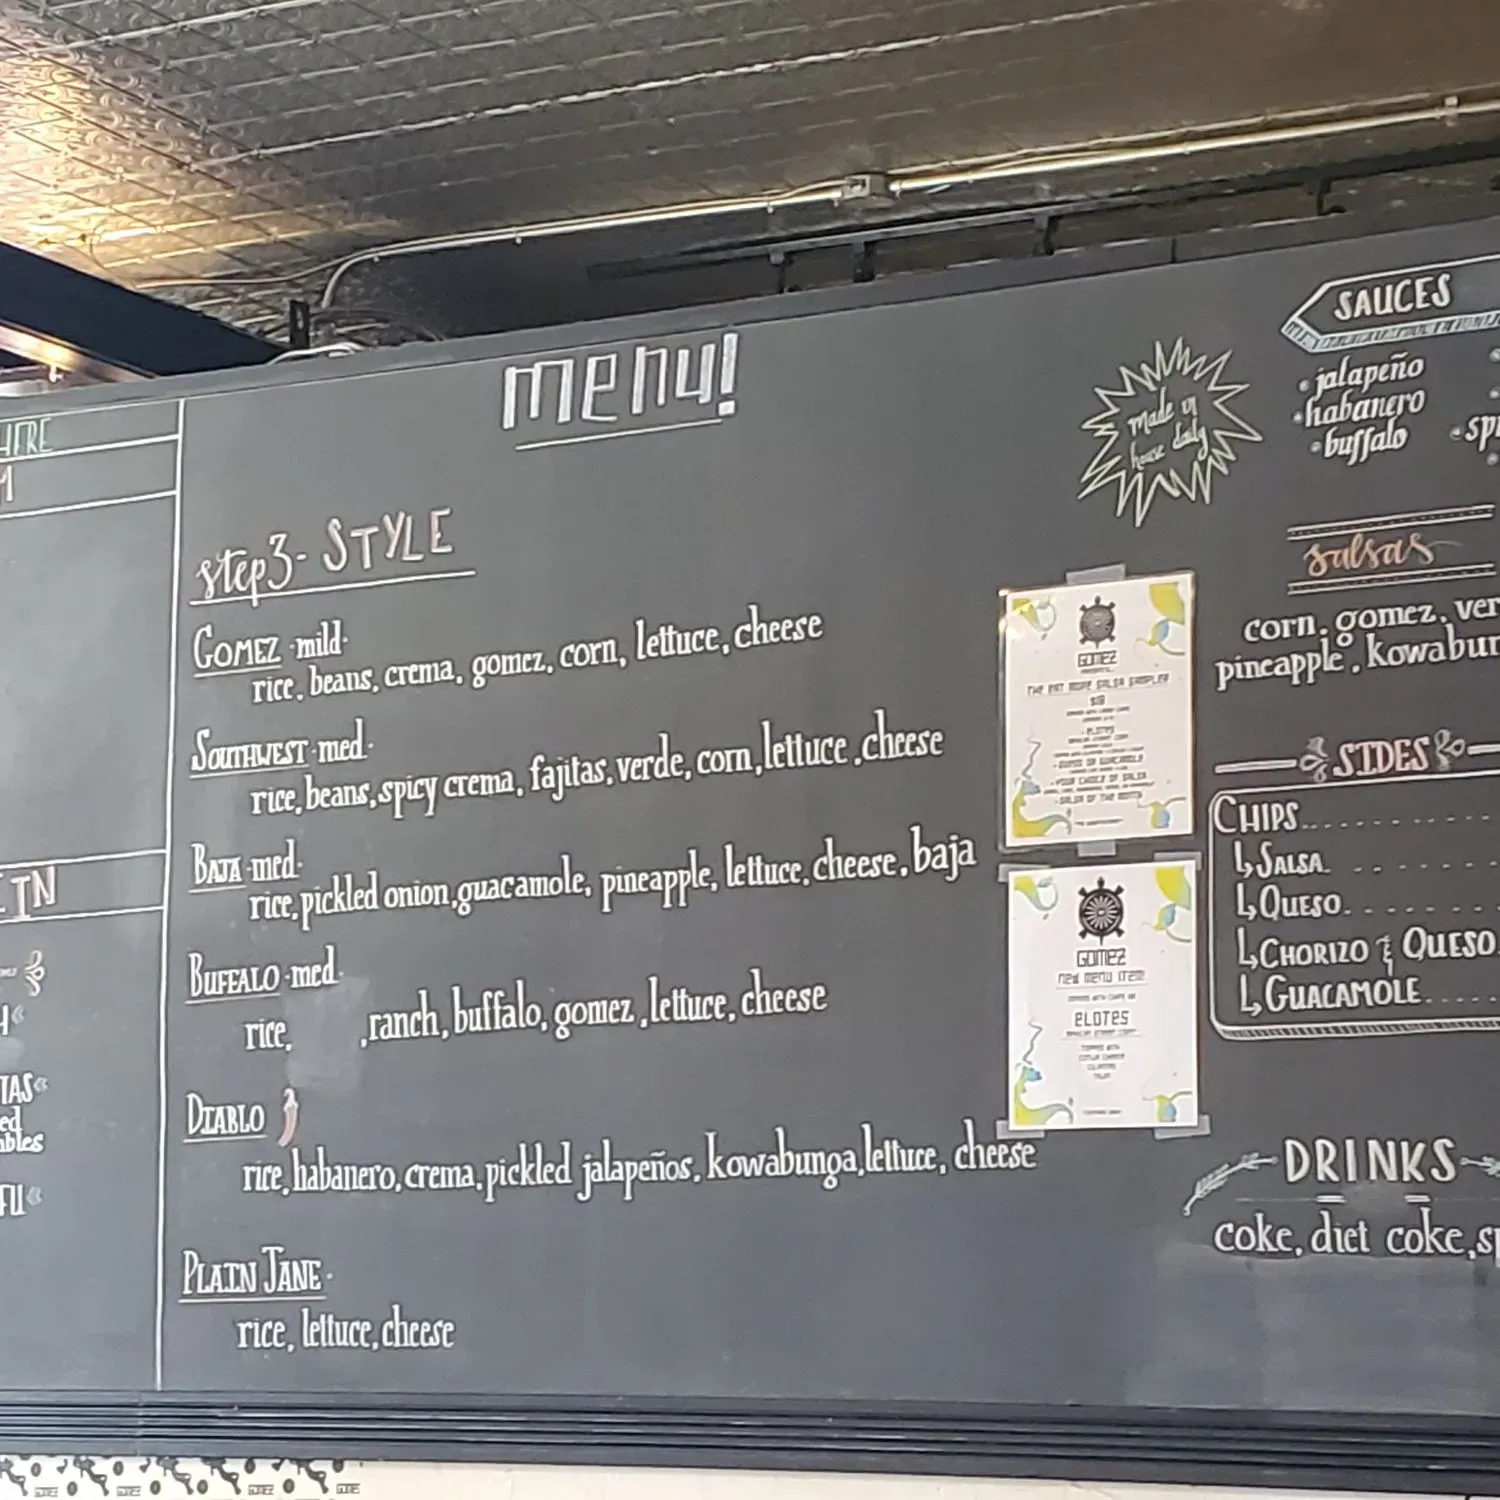 menu!
step3- STYLE
GOMEZ ·mild·
rice, beans, crema, gomez, corn, lettuce, cheese
SOUTHWEST ·med·
rice, beans, spicy crema, fajitas, verde, corn, lettuce, cheese
BAJA ·med·
rice, pickled onion, guacamole, pineapple, lettuce, cheese, baja
BUFFALO ·med·
rice, , ranch, buffalo, gomez, lettuce, cheese
DIABLO
rice, habanero, crema, pickled jalapeños, kowabunga, lettuce, cheese
PLAIN JANE·
rice, lettuce, cheese
made in
house daily
GOMEZ
THE EAT MORE SALSA SAMPLER
ELOTES
YOUR CHOICE OF SALSA
SALSA OF THE MONTH
GOMEZ
NEW MENU ITEM
ELOTES
SAUCES
• jalapeño
• habanero
• buffalo
salsas
corn, gomez, ver
pineapple, kowabun
SIDES
CHIPS
SALSA
QUESO
CHORIZO & QUESO
GUACAMOLE
DRINKS
coke, diet coke, sp